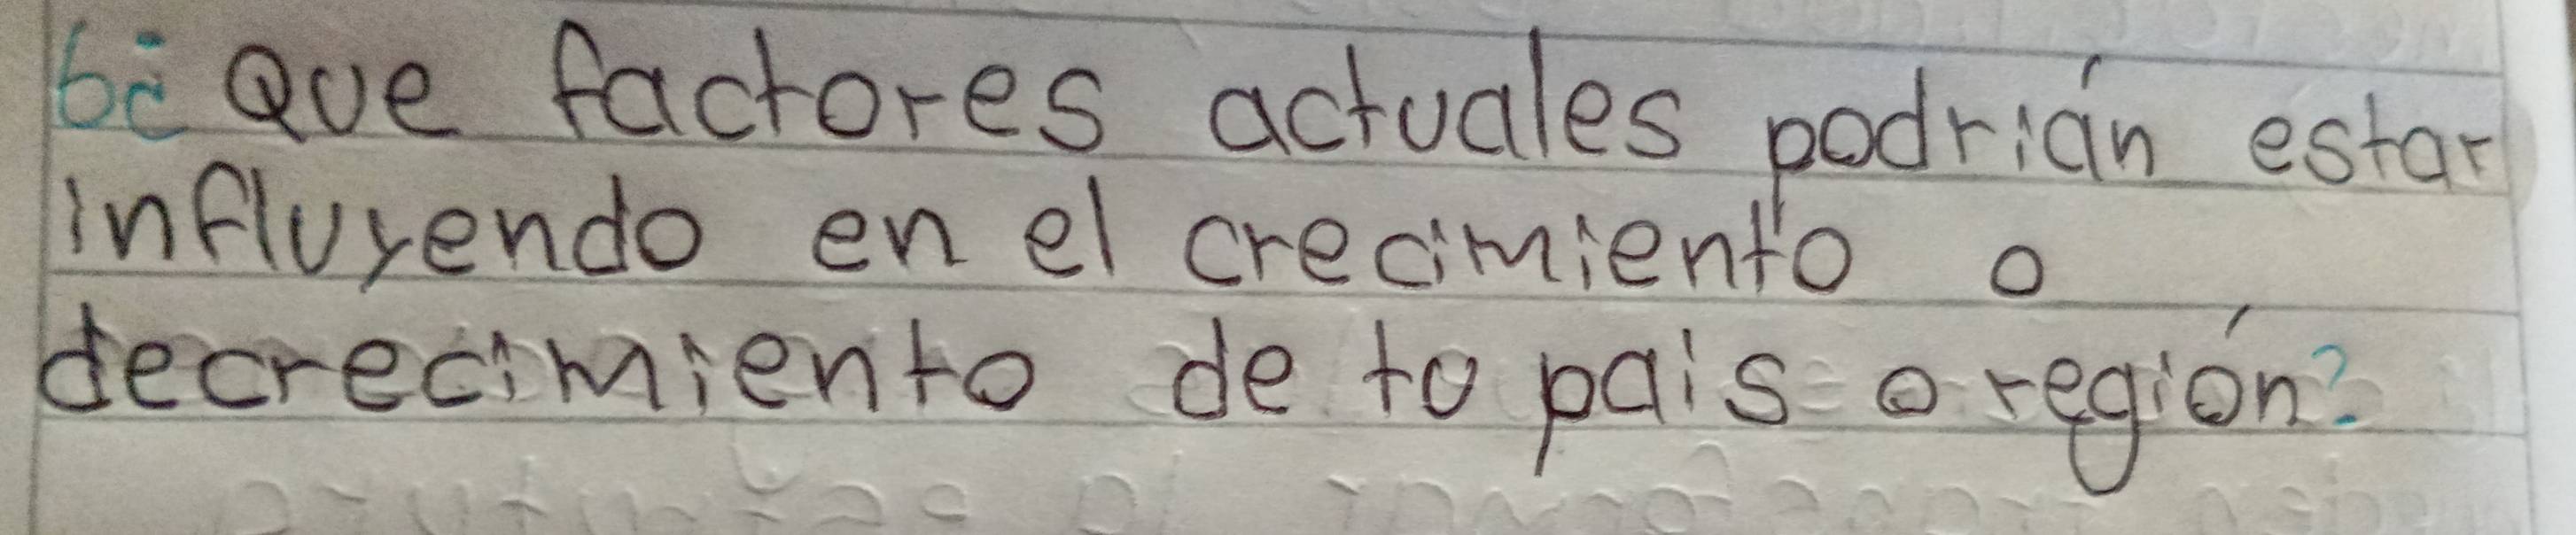 6¿ Que factores actuales podrián estar
influyendo en el crecimiento o
decrecimiento de tu pais o región?